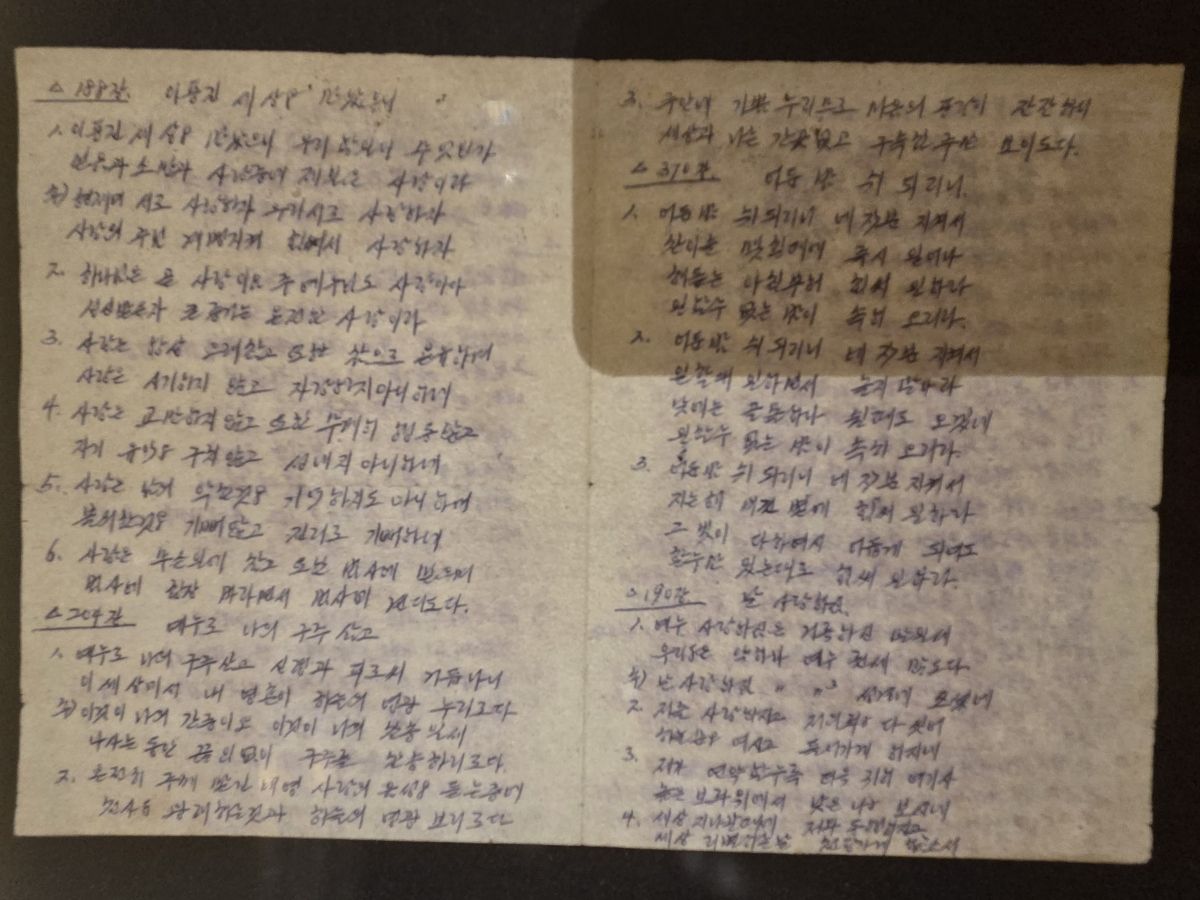 △ 188장. 이풍진 세상을 만났으니
1. 이풍진 세상을 만났으니 우리 할일이 무엇인가
믿음과 소망과 사랑중에 제일은 사랑이라
후) 서로 사랑하자 우리서로 사랑하자
사랑의 주님 계명지켜 힘써서 사랑하자
2. 하나님은 곧 사랑이요 주예수님도 사랑이라
큰 증거는 온전한 사랑이라
3. 사랑은 항상 오래참고 또한 으로 온유하며
사랑은 시기하지 않고 자랑하지아니하며
4. 사랑은 교만하지않고 또한 무례히 행동않고
자기 유익을 구치않고 성내지 아니하며
5. 사랑은 남의 악한것을 기억하지도 아니하며
불의한것을 기뻐않고 진리로 기뻐하며
6. 사랑은 참고 또한 범사에 믿으며
범사에 항상 바라면서 범사에 견디도다.
△ 204장 예수로 나의 구주 삼고
1. 예수로 나의 구주삼고 성령과 피로써 거듭나니
이세상에서 내 영혼이 하늘의 영광 누리도다
후) 이것이 나의 간증이요 이것이 나의 찬송일세
나사는 동안 끊임없이 구주를 찬송하리로다.
2. 온전히 주께 맡긴 내영 사랑의 음성을 듣는중에
천사들 왕래하는것과 하늘의 영광 보리로다
3. 주안에 기쁨 누리므로 마음의 풍랑이 잔잔하니
세상과 나는 간곳없고 구속한 주만 보이도다.
△ 370장. 어둔 밤 쉬 되리니.
1. 어둔 밤 쉬 되리니 네 직분 지켜서
찬이슬 맺힐때에 즉시 일어나
해돋는 아침부터 힘써 일하라
일할수 없는 밤이 속히 오리라.
2. 어둔 밤 쉬 되리니 네 직분 지켜서
일할때 일하면서 놀지 말아라
낮에는 골몰하나 쉴때도 오겠네
일할수 없는 밤이 속히 오리라.
3. 어둔 밤 쉬 되리니 네 직분 지켜서
지는해 비낀 볕에 힘써 일하라
그 빛이 다하여서 어둡게 되어도
할수만 있는대로 힘써 일하라.
△ 190장 날 사랑하심.
1. 예수 사랑하심은 거룩하신 말일세
우리들은 약하나 예수 권세 많도다.
후) 날 사랑하심 〃 〃 ³ 성경에 쓰셨네
2. 저를 사랑하시고 저의죄를 다 씻어
하늘문을 여시고 들어가게 하시네
3. 제가 연약할수록 더욱 귀히 여기사
높은 보좌위에서 낮은 나를 보시네
4. 세상 지나갈때에 저와 동행하시고
세상 떠나는날